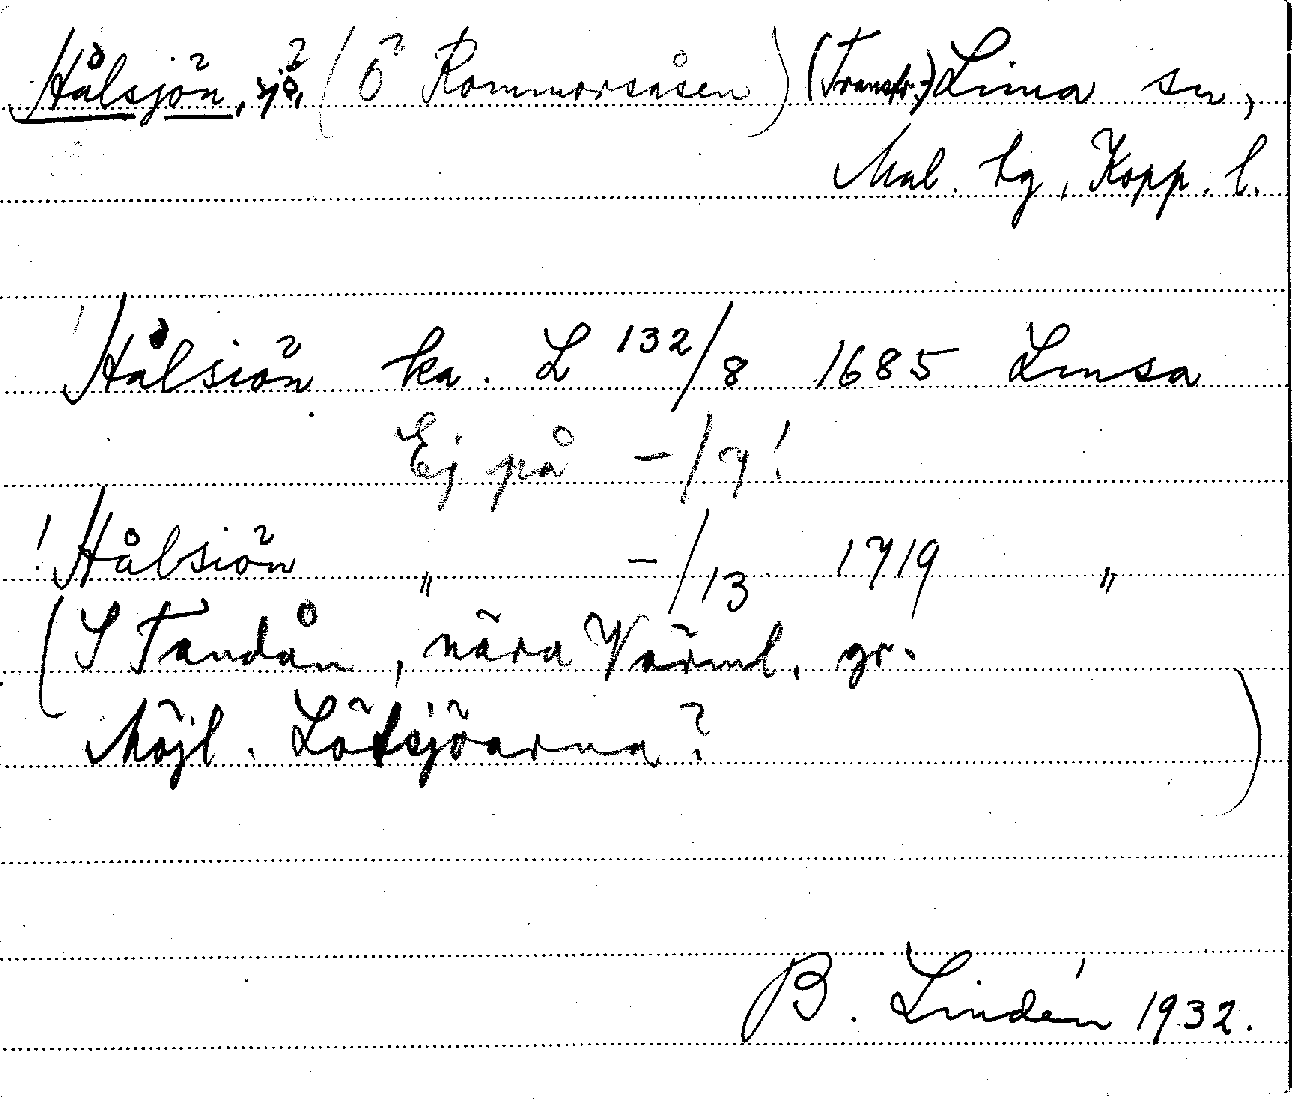 Hålsjön, sjö, (Ö Rommorsåsen) (Transtr.) Lima sn,
Mal. tg, Kopp. l.
Hålsiön ka. L 132/8 1685 Lmsa
Ej på -/7!
! Hålsiön " -/13 1719 "
(S Tandån, nära Värml. gr.
Möjl. Lötsjöarna? )
B. Lindén 1932.